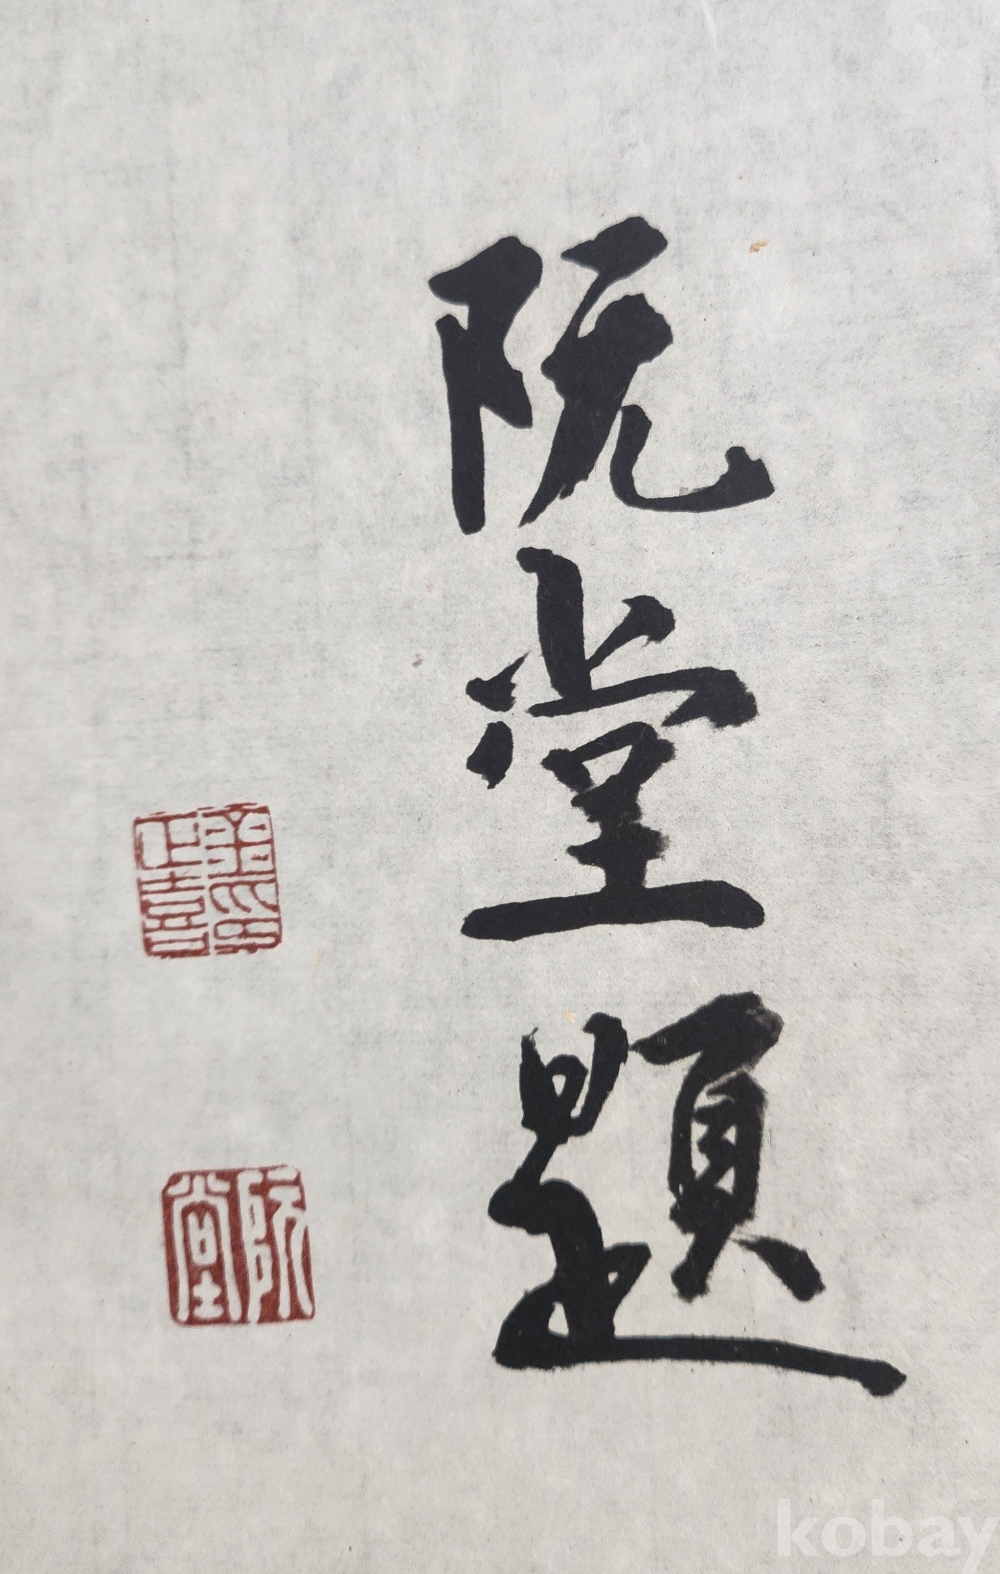 阮堂題
阮堂
kobay